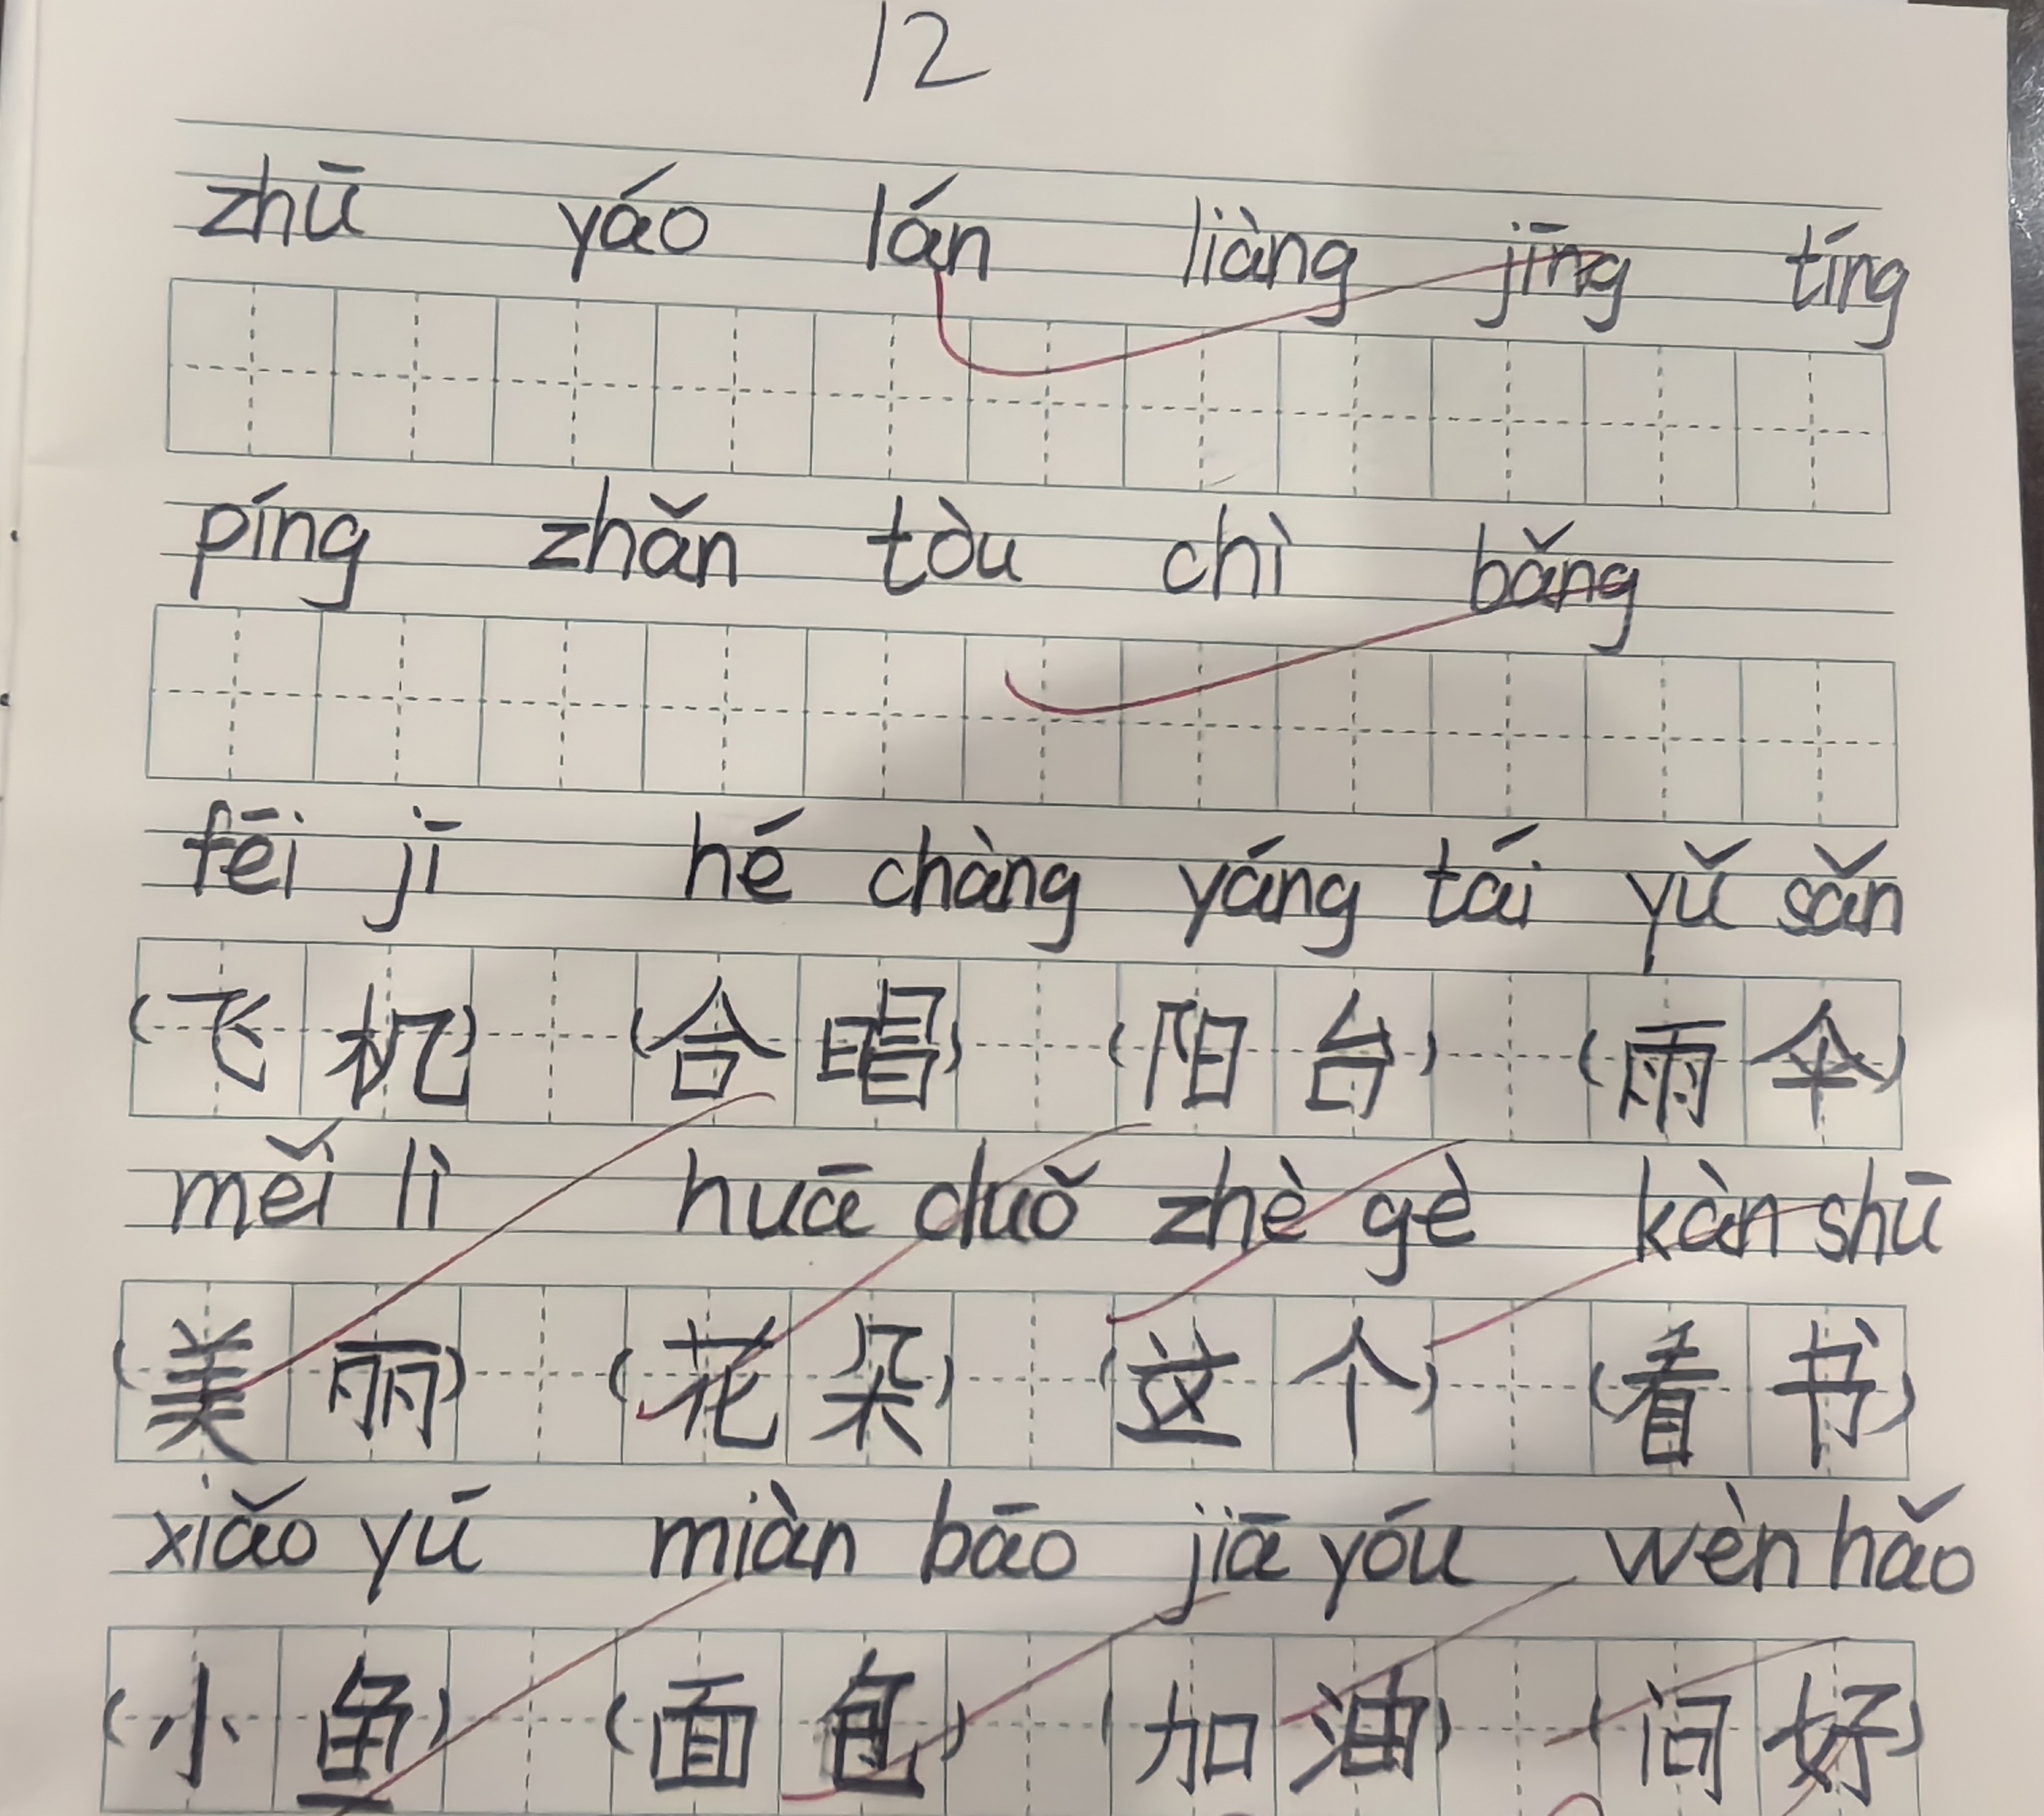 12
zhū yáo lán liàng jīng tíng
píng zhǎn tòu chì bǎng
fēi jī hé chàng yáng tái yǔ sǎn
(飞机) (合唱) (阳台) (雨伞)
měi lì huā duǒ zhè gè kàn shū
(美丽) (花朵) (这个) (看书)
xiǎo yú miàn bāo jiā yóu wèn hǎo
(小鱼) (面包) (加油) (问好)